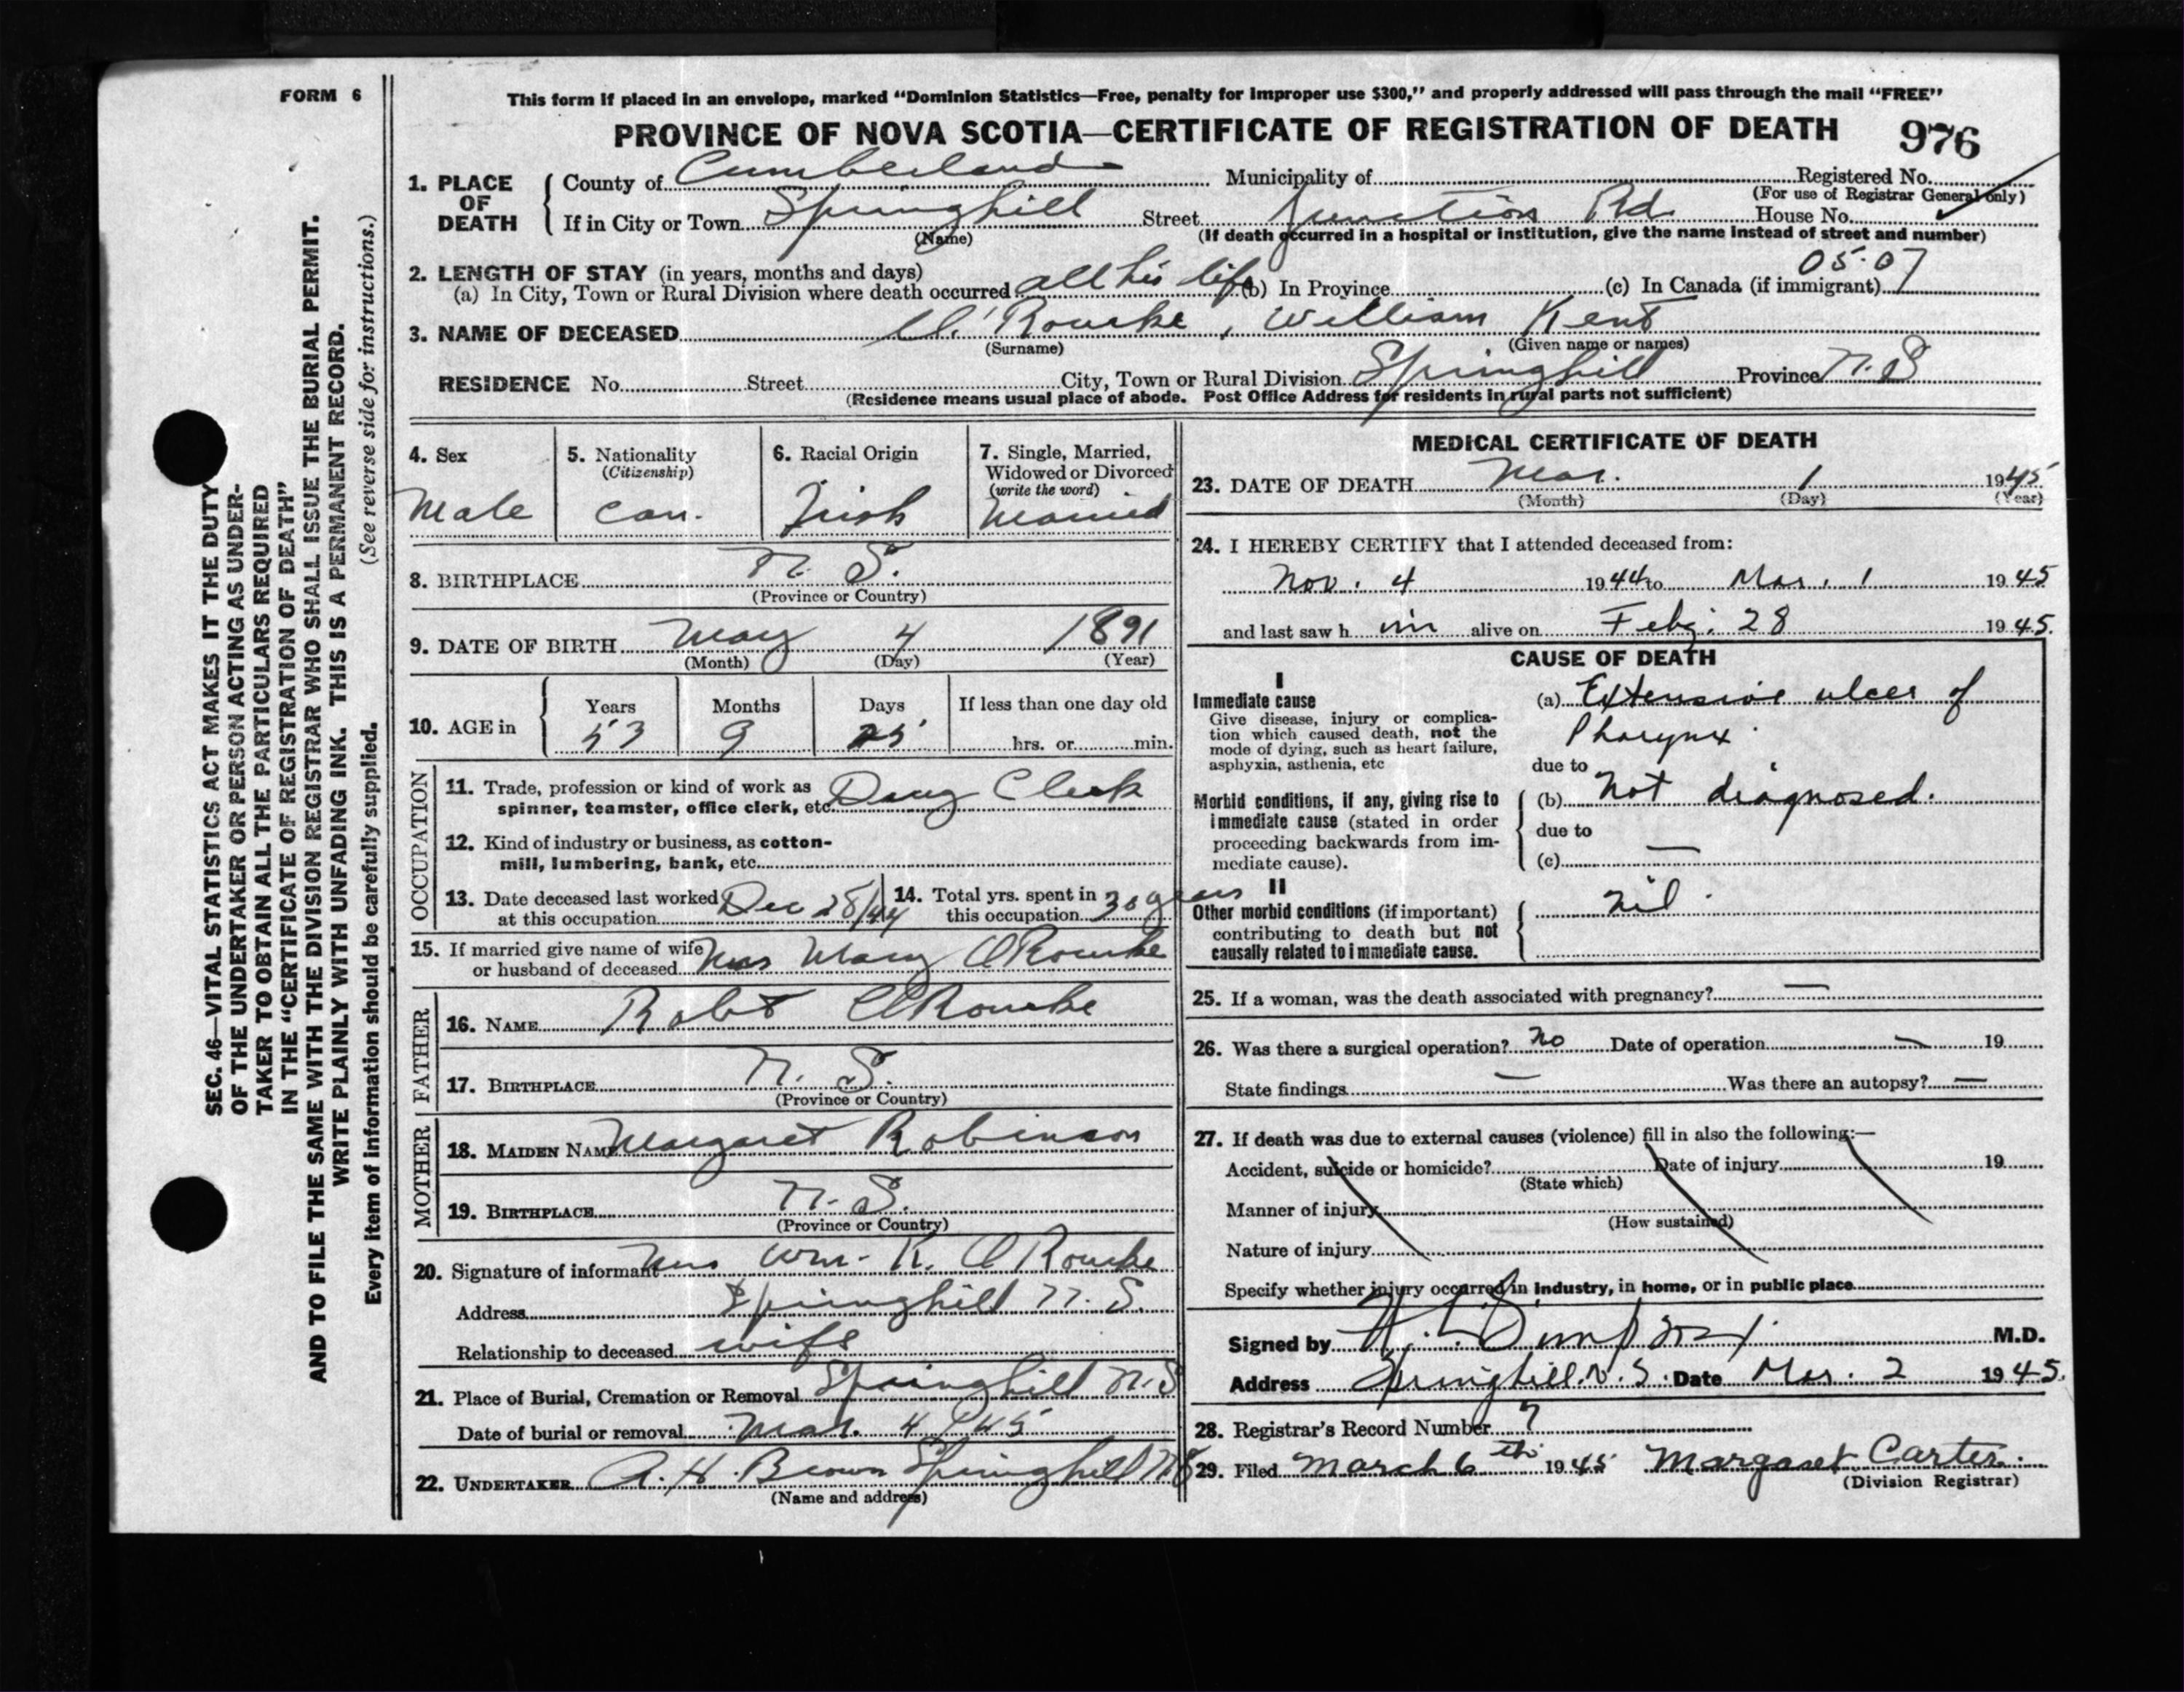 FORM 6
This form if placed in an envelope, marked “Dominion Statistics—Free, penalty for improper use $300,” and properly addressed will pass through the mail “FREE”
PROVINCE OF NOVA SCOTIA—CERTIFICATE OF REGISTRATION OF DEATH 976
SEC. 46—VITAL STATISTICS ACT MAKES IT THE DUTY
OF THE UNDERTAKER OR PERSON ACTING AS UNDER-
TAKER TO OBTAIN ALL THE PARTICULARS REQUIRED
IN THE “CERTIFICATE OF REGISTRATION OF DEATH”
AND TO FILE THE SAME WITH THE DIVISION REGISTRAR WHO SHALL ISSUE THE BURIAL PERMIT.
WRITE PLAINLY WITH UNFADING INK. THIS IS A PERMANENT RECORD.
Every item of information should be carefully supplied. (See reverse side for instructions.)
1. PLACE OF DEATH
County of Cumberland Municipality of Registered No.
(For use of Registrar General only)
If in City or Town Springhill Street Junction Rd. House No.
(Name) (If death occurred in a hospital or institution, give the name instead of street and number)
2. LENGTH OF STAY (in years, months and days) 05-07
(a) In City, Town or Rural Division where death occurred all his life (b) In Province (c) In Canada (if immigrant)
3. NAME OF DECEASED O'Rourke, William Kent
(Surname) (Given name or names)
RESIDENCE No. Street City, Town or Rural Division Springhill Province N.S
(Residence means usual place of abode. Post Office Address for residents in rural parts not sufficient)
4. Sex
Male
5. Nationality
(Citizenship)
Can.
6. Racial Origin
Irish
7. Single, Married,
Widowed or Divorced
(write the word)
Married
8. BIRTHPLACE N. S.
(Province or Country)
9. DATE OF BIRTH May 4 1891
(Month) (Day) (Year)
10. AGE in
Years Months Days If less than one day old
53 9 25 hrs. or min.
OCCUPATION
11. Trade, profession or kind of work as
spinner, teamster, office clerk, etc. Drug Clerk
12. Kind of industry or business, as cotton-
mill, lumbering, bank, etc.
13. Date deceased last worked
at this occupation Dec 28/44
14. Total yrs. spent in
this occupation 30 years
15. If married give name of wife
or husband of deceased Mrs Mary O'Rourke
FATHER
16. NAME Robt O'Rourke
17. BIRTHPLACE N. S.
(Province or Country)
MOTHER
18. MAIDEN NAME Margaret Robinson
19. BIRTHPLACE N. S.
(Province or Country)
20. Signature of informant Mrs Wm. K. O'Rourke
Address Springhill N. S.
Relationship to deceased wife
21. Place of Burial, Cremation or Removal Springhill N.S
Date of burial or removal Mar. 4/45
22. UNDERTAKER A. H. Brown Springhill N.S
(Name and address)
MEDICAL CERTIFICATE OF DEATH
23. DATE OF DEATH Mar. 1 1945
(Month) (Day) (Year)
24. I HEREBY CERTIFY that I attended deceased from:
Nov. 4 1944 to Mar. 1 1945
and last saw h im alive on Feby. 28 1945.
CAUSE OF DEATH
I
Immediate cause
Give disease, injury or complica-
tion which caused death, not the
mode of dying, such as heart failure,
asphyxia, asthenia, etc
(a) Extensive ulcer of
Pharynx.
due to
Morbid conditions, if any, giving rise to
immediate cause (stated in order
proceeding backwards from im-
mediate cause).
(b) Not diagnosed.
due to
(c) —
II
Other morbid conditions (if important)
contributing to death but not
causally related to immediate cause.
nil.
25. If a woman, was the death associated with pregnancy? —
26. Was there a surgical operation? no Date of operation — 19
State findings — Was there an autopsy? —
27. If death was due to external causes (violence) fill in also the following:—
Accident, suicide or homicide? Date of injury 19
(State which)
Manner of injury
(How sustained)
Nature of injury
Specify whether injury occurred in industry, in home, or in public place
Signed by M.D.
Address Springhill. N. S. Date Mar. 2 1945.
28. Registrar's Record Number 7
29. Filed March 6th 1945 Margaret Carter.
(Division Registrar)